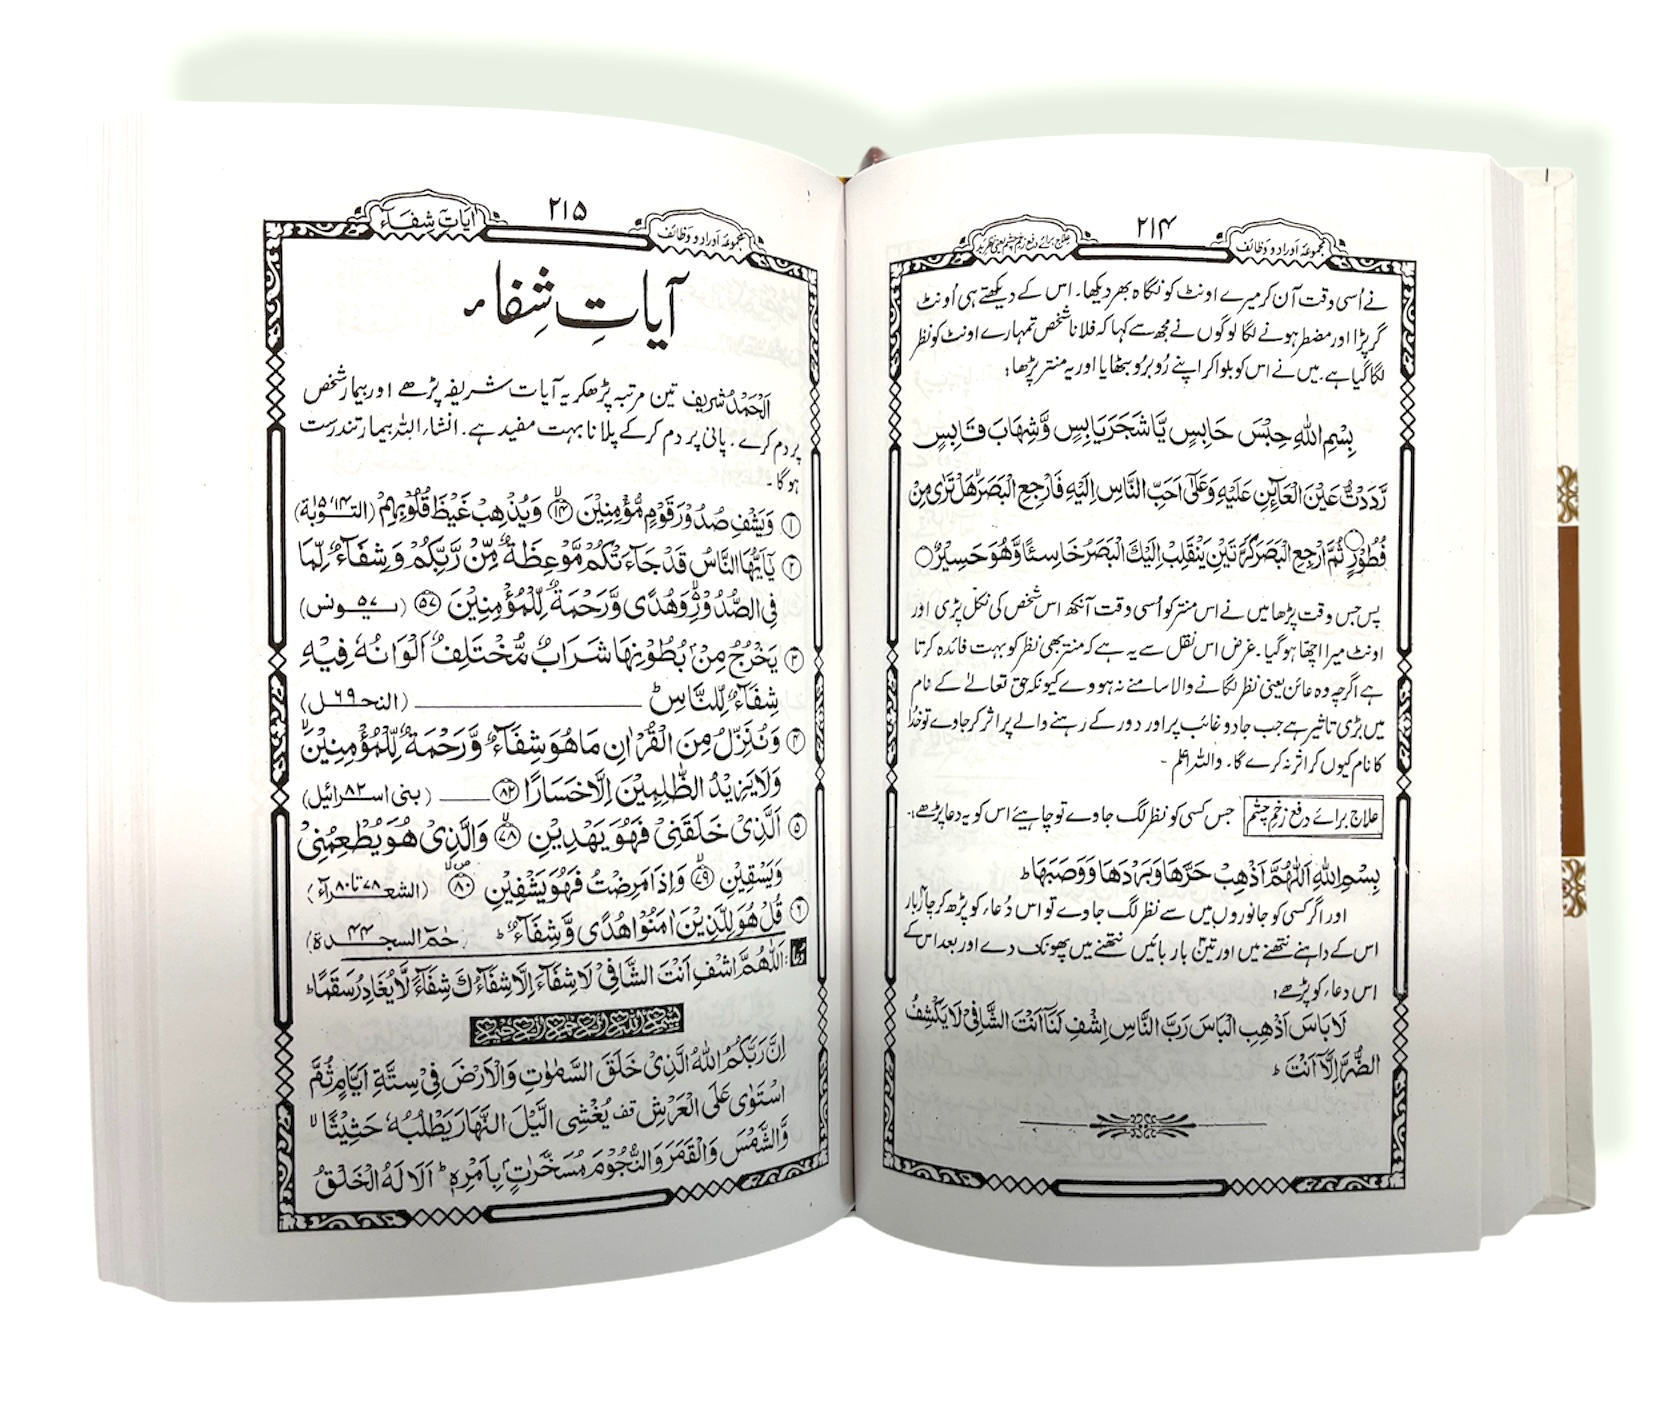 مجموعۂ اوراد و وظائف
۲۱۴
علاج برائے دفع زخم چشم یعنی نظر بد
نے اُسی وقت آن کر میرے اونٹ کو نگاہ بھر دیکھا۔ اس کے دیکھتے ہی اُونٹ
گر پڑا اور مضطر ہونے لگا لوگوں نے مجھ سے کہا کہ فلانا شخص تمہارے اونٹ کو نظر
لگا گیا ہے۔ میں نے اس کو بلوا کر اپنے رُوبرو بٹھایا اور یہ منتر پڑھا:
بِسْمِ اللّٰهِ حِبْسَ حَابِسٍ يَّا شَجَرَ يَابِسٍ وَّشِهَابَ قَابِسٍ
رَّدَدْتُّ عَيْنَ الْعَآئِنِ عَلَيْهِ وَعَلٰى اَحَبِّ النَّاسِ اِلَيْهِ فَارْجِعِ الْبَصَرَ هَلْ تَرٰى مِنْ
فُطُوْرٍ ○ ثُمَّ ارْجِعِ الْبَصَرَ كَرَّتَيْنِ يَنْقَلِبْ اِلَيْكَ الْبَصَرُ خَاسِئًا وَّهُوَ حَسِيْرٌ ○
پس جس وقت پڑھا میں نے اس منتر کو اُسی وقت آنکھ اس شخص کی نکل پڑی اور
اونٹ میرا اچھا ہوگیا۔ غرض اس نقل سے یہ ہے کہ منتر بھی نظر کو بہت فائدہ کرتا
ہے اگرچہ وہ عائن یعنی نظر لگانے والا سامنے نہ ہووے کیونکہ حق تعالٰے کے نام
میں بڑی تاثیر ہے جب جادو غائب پر اور دور کے رہنے والے پر اثر کر جاوے تو خدا
کا نام کیوں کر اثر نہ کرے گا۔ واللہ اعلم -
علاج برائے دفع زخم چشم جس کسی کو نظر لگ جاوے تو چاہیئے اس کو یہ دعا پڑھے:-
بِسْمِ اللّٰهِ اَللّٰهُمَّ اَذْهِبْ حَرَّهَا وَبَرْدَهَا وَوَصَبَهَا ؕ
اور اگر کسی کو جانوروں میں سے نظر لگ جاوے تو اس دُعاء کو پڑھ کر چار بار
اس کے داہنے نتھنے میں اور تین بار بائیں نتھنے میں پھونک دے اور بعد اس کے
اس دعاء کو پڑھے:
لَا بَاسَ اَذْهِبِ الْبَاسَ رَبَّ النَّاسِ اِشْفِ لَنَا اَنْتَ الشَّافِیْ لَا يَكْشِفُ
الضُّرَّ اِلَّا اَنْتَ ؕ
مجموعۂ اوراد و وظائف
۲۱۵
آیاتِ شِفَآء
آیاتِ شِفاء
اَلْحَمْدُ شریف تین مرتبہ پڑھکر یہ آیات شریفہ پڑھے اور بیمار شخص
پر دم کرے۔ پانی پر دم کرکے پلانا بہت مفید ہے۔ انشاء اللہ بیمار تندرست
ہوگا۔
① وَيَشْفِ صُدُوْرَ قَوْمٍ مُّؤْمِنِيْنَ ۙ﴿۱۴﴾ وَيُذْهِبْ غَيْظَ قُلُوْبِهِمْ (التوبة ۱۴، ۱۵)
② يٰۤاَيُّهَا النَّاسُ قَدْ جَآءَتْكُمْ مَّوْعِظَةٌ مِّنْ رَّبِّكُمْ وَشِفَآءٌ لِّمَا
فِى الصُّدُوْرِ ۙ وَهُدًى وَّرَحْمَةٌ لِّلْمُؤْمِنِيْنَ ﴿۵۷﴾ (یونس ۵۷)
③ يَخْرُجُ مِنْۢ بُطُوْنِهَا شَرَابٌ مُّخْتَلِفٌ اَلْوَانُهٗ فِيْهِ
شِفَآءٌ لِّلنَّاسِ ؕ (النحل ۶۹)
④ وَنُنَزِّلُ مِنَ الْقُرْاٰنِ مَا هُوَ شِفَآءٌ وَّرَحْمَةٌ لِّلْمُؤْمِنِيْنَ ۙ
وَلَا يَزِيْدُ الظّٰلِمِيْنَ اِلَّا خَسَارًا ﴿۸۲﴾ (بنی اسرائیل ۸۲)
⑤ الَّذِیْ خَلَقَنِیْ فَهُوَ يَهْدِيْنِ ۙ﴿۷۸﴾ وَالَّذِیْ هُوَ يُطْعِمُنِیْ
وَيَسْقِيْنِ ۙ﴿۷۹﴾ وَاِذَا مَرِضْتُ فَهُوَ يَشْفِيْنِ ﴿۸۰﴾ (الشعراء ۷۸ تا ۸۰)
⑥ قُلْ هُوَ لِلَّذِيْنَ اٰمَنُوْا هُدًى وَّشِفَآءٌ ؕ (حٰمٓ السجدة ۴۴)
دعا: اَللّٰهُمَّ اشْفِ اَنْتَ الشَّافِیْ لَا شِفَآءَ اِلَّا شِفَآءُكَ شِفَآءً لَّا يُغَادِرُ سَقَمًا ؕ
بسم الله الرحمن الرحيم
اِنَّ رَبَّكُمُ اللّٰهُ الَّذِیْ خَلَقَ السَّمٰوٰتِ وَالْاَرْضَ فِیْ سِتَّةِ اَيَّامٍ ثُمَّ
اسْتَوٰى عَلَى الْعَرْشِ قف يُغْشِى الَّيْلَ النَّهَارَ يَطْلُبُهٗ حَثِيْثًا ۙ
وَّالشَّمْسَ وَالْقَمَرَ وَالنُّجُوْمَ مُسَخَّرٰتٍۭ بِاَمْرِهٖ ؕ اَلَا لَهُ الْخَلْقُ